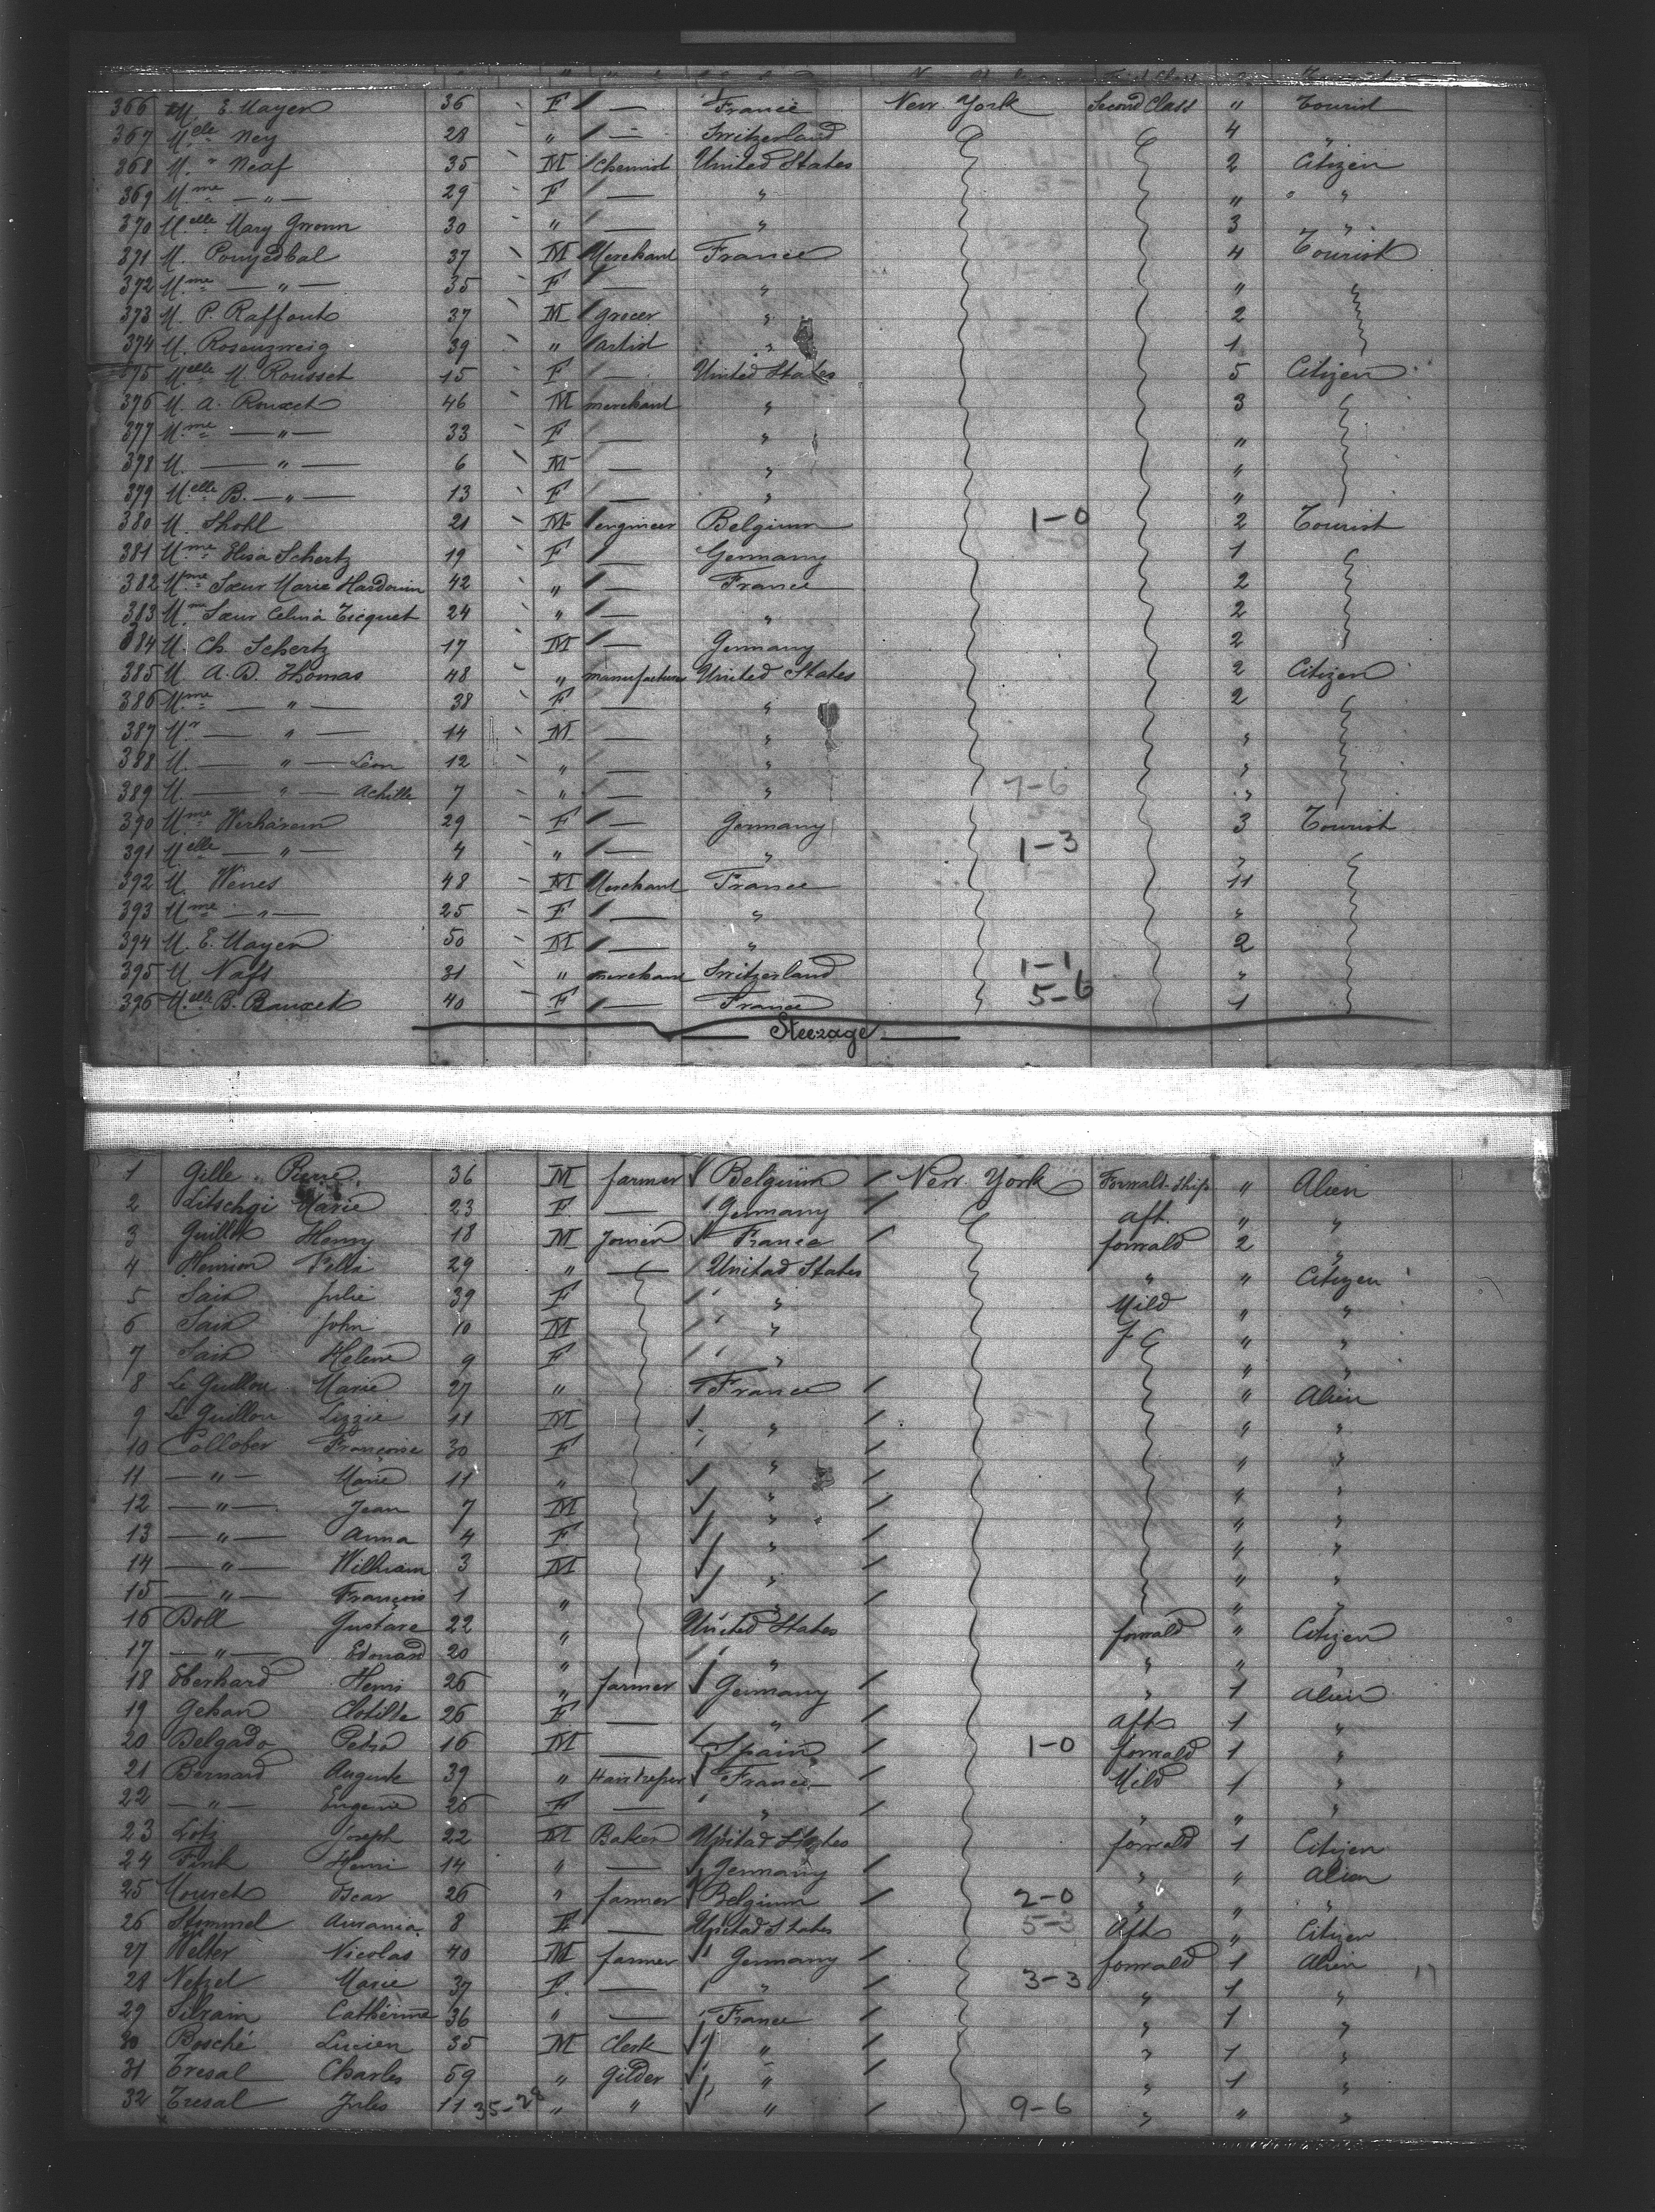 366 E. Mayer 36 F — France New York Second Class " Tourist
367 Melle Ney 28 " — Switzerland 4 "
368 M. " Neaf 35 M Chemist United States 2 Citizen
369 Mme — " — 29 F — " " "
370 Melle Mary 30 " — " 3 "
371 M. 37 M Merchant France 4 Tourist
372 Mme — " — 35 F — " "
373 M. P. Raffout 37 M grocer " 2
374 M. Rosenzweig 39 " artist " 1
375 Melle M. Rousset 15 F — United States 5 Citizen
376 M. A. Rouxet 46 M merchant " 3
377 Mme — " — 33 F — " "
378 M. — " — 6 M — " "
379 Melle B. — " — 13 F — " "
380 M. Shohl 21 M engineer Belgium 1-0 2 Tourist
381 Mme Elsa Schertz 19 F — Germany 1
382 Mme Sœur Marie Hardouin 42 " — France 2
383 Mme Sœur Celina Ticquet 24 " — " 2
384 M. Ch. Schertz 17 M — Germany 2
385 M A. D. Thomas 48 " manufacturer United States 2 Citizen
386 Mme — " — 38 F — " 2
387 Mr — " — 14 M — " "
388 M. — " — Léon 12 " — " "
389 M. — " — Achille 7 " — " 7-6 "
390 Mme 29 F — Germany 3 Tourist
391 Melle — " — 4 " — " 1-3 "
392 M. Weves 48 M Merchant France 11
393 Mme — " — 25 F — " "
394 M. E. Mayer 50 M — " 2
395 M Nafs 31 " merchant Switzerland 1-1 "
396 Melle B. Bauxet 40 F — France 5-6 1
— Steerage —
1 Gille Pierre 36 M farmer Belgium New York Forwald-Ship " Alien
2 Litschgi Marie 23 F — Germany aft. " "
3 Guillot Henry 18 M Joiner France forwald 2 "
4 Henrion Félix 29 " — Unitad States " " Citizen
5 Sain Julie 39 F " Mild " "
6 Sain John 10 M " " "
7 Sain Helene 9 F " " "
8 Le Guillou Marie 27 " France " Alien
9 Le Guillou Lizzie 11 M " " "
10 Collober Françoise 30 F " " "
11 — " — Marie 11 " " " "
12 — " — Jean 7 M " " "
13 — " — Anna 4 F " " "
14 — " — William 3 M " " "
15 — " — François 1 " " " "
16 Boll Gustave 22 " United States forwald " Citizen
17 — " — Edouard 20 " " " " "
18 Eberhard Henri 26 " farmer Germany " 1 Alien
19 Gehan Clotilde 26 F — " Aft 1 "
20 Belgado Pedro 16 M — Spain 1-0 forwald 1 "
21 Bernard Auguste 39 " France Mild 1 "
22 — " — Eugenie 26 F — " " " "
23 Lotz Joseph 22 M Baker Unitad States forwald 1 Citizen
24 Fink Henri 14 " — Germany " " Alien
25 Mouret Oscar 26 " farmer Belgium 2-0 " " "
26 Stimmel Aurania 8 F — Unitad States 5-3 Aft " Citizen
27 Welter Nicolas 40 M farmer Germany forwald 1 Alien
28 Netzel Marie 37 F. — " 3-3 " 1 "
29 Silvain Cathérine 36 " — France " 1 "
30 Bosché Lucien 35 M Clerk " " 1 "
31 Tresal Charles 59 " gilder " " 1 "
32 Tresal Jules 11 35-28 " " " 9-6 " " "